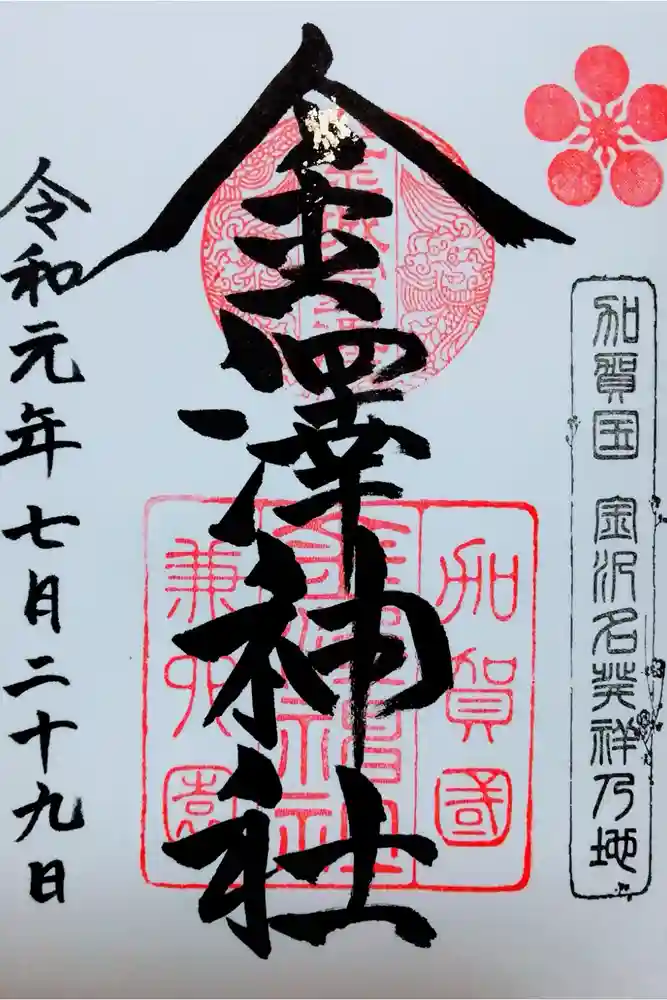 加賀国 金沢名発祥乃地
加賀國
兼六園
金澤神社
令和元年七月二十九日